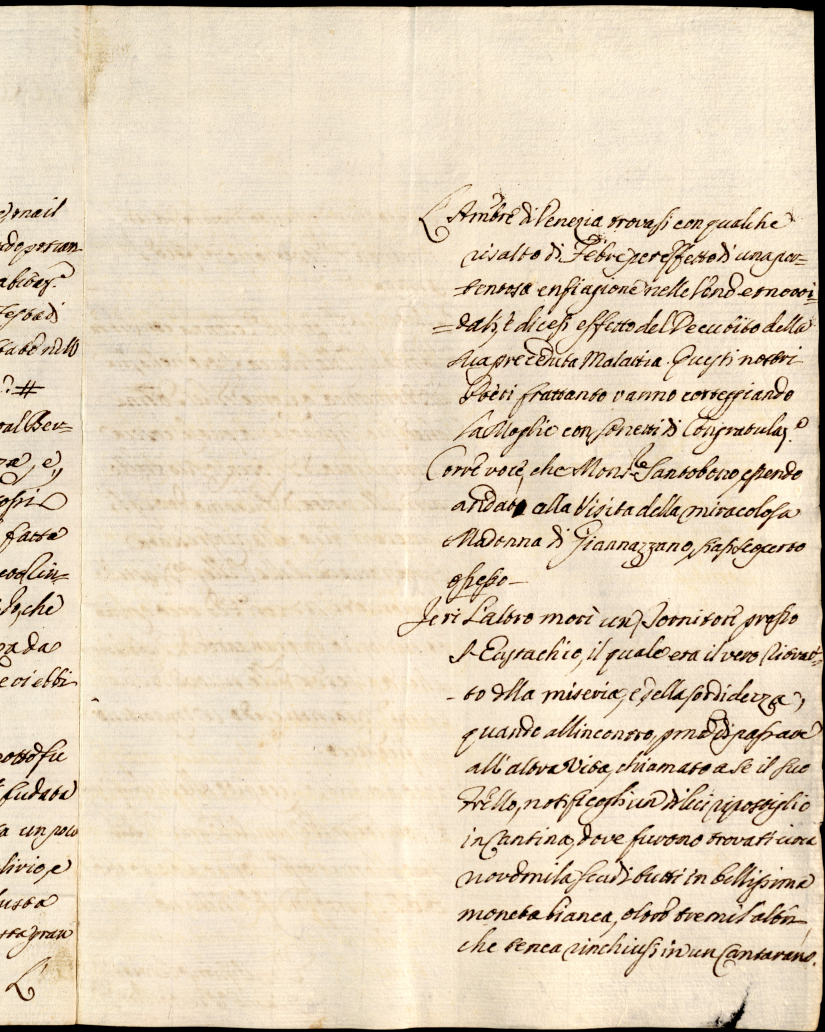 e, mail
abitaz.e
? #
ral Ber=
e,
fatta
eodlin=
do, che
pada
e vi ebbi
fu
sudata
un poco
livio, e
L'
L'Ambre di Venezia trovasi con qualche
risalto di Febre per effetto d'una por=
tentosa enfiagione nelle
=dali, e dicesi effetto del Decubito della
sua preceduta Malattia. Questi nostri
Poeti frattanto vanno corteggiando
la Moglie con sonetti di Congratulaz.e
Corre voce, che Mons.re Santobono essendo
andato alla Visita della miracolosa
Madonna di Giannazzano,
ossesso
Jeri l'altro morì un Fornitore presso
S. Eustachio, il quale era il vero Ritrat=
=to della miseria, e della sordidezza,
quando all'incontro, pma di passare
all'altra Vita, chiamato a se il suo
Frello, notificogli un di lui ripostiglio
in Cantina, dove furono trovati circa
novemila scudi tutti in bellissima
moneta bianca, oltre tremil'altri,
che tenea rinchiusi in un Cantarano.